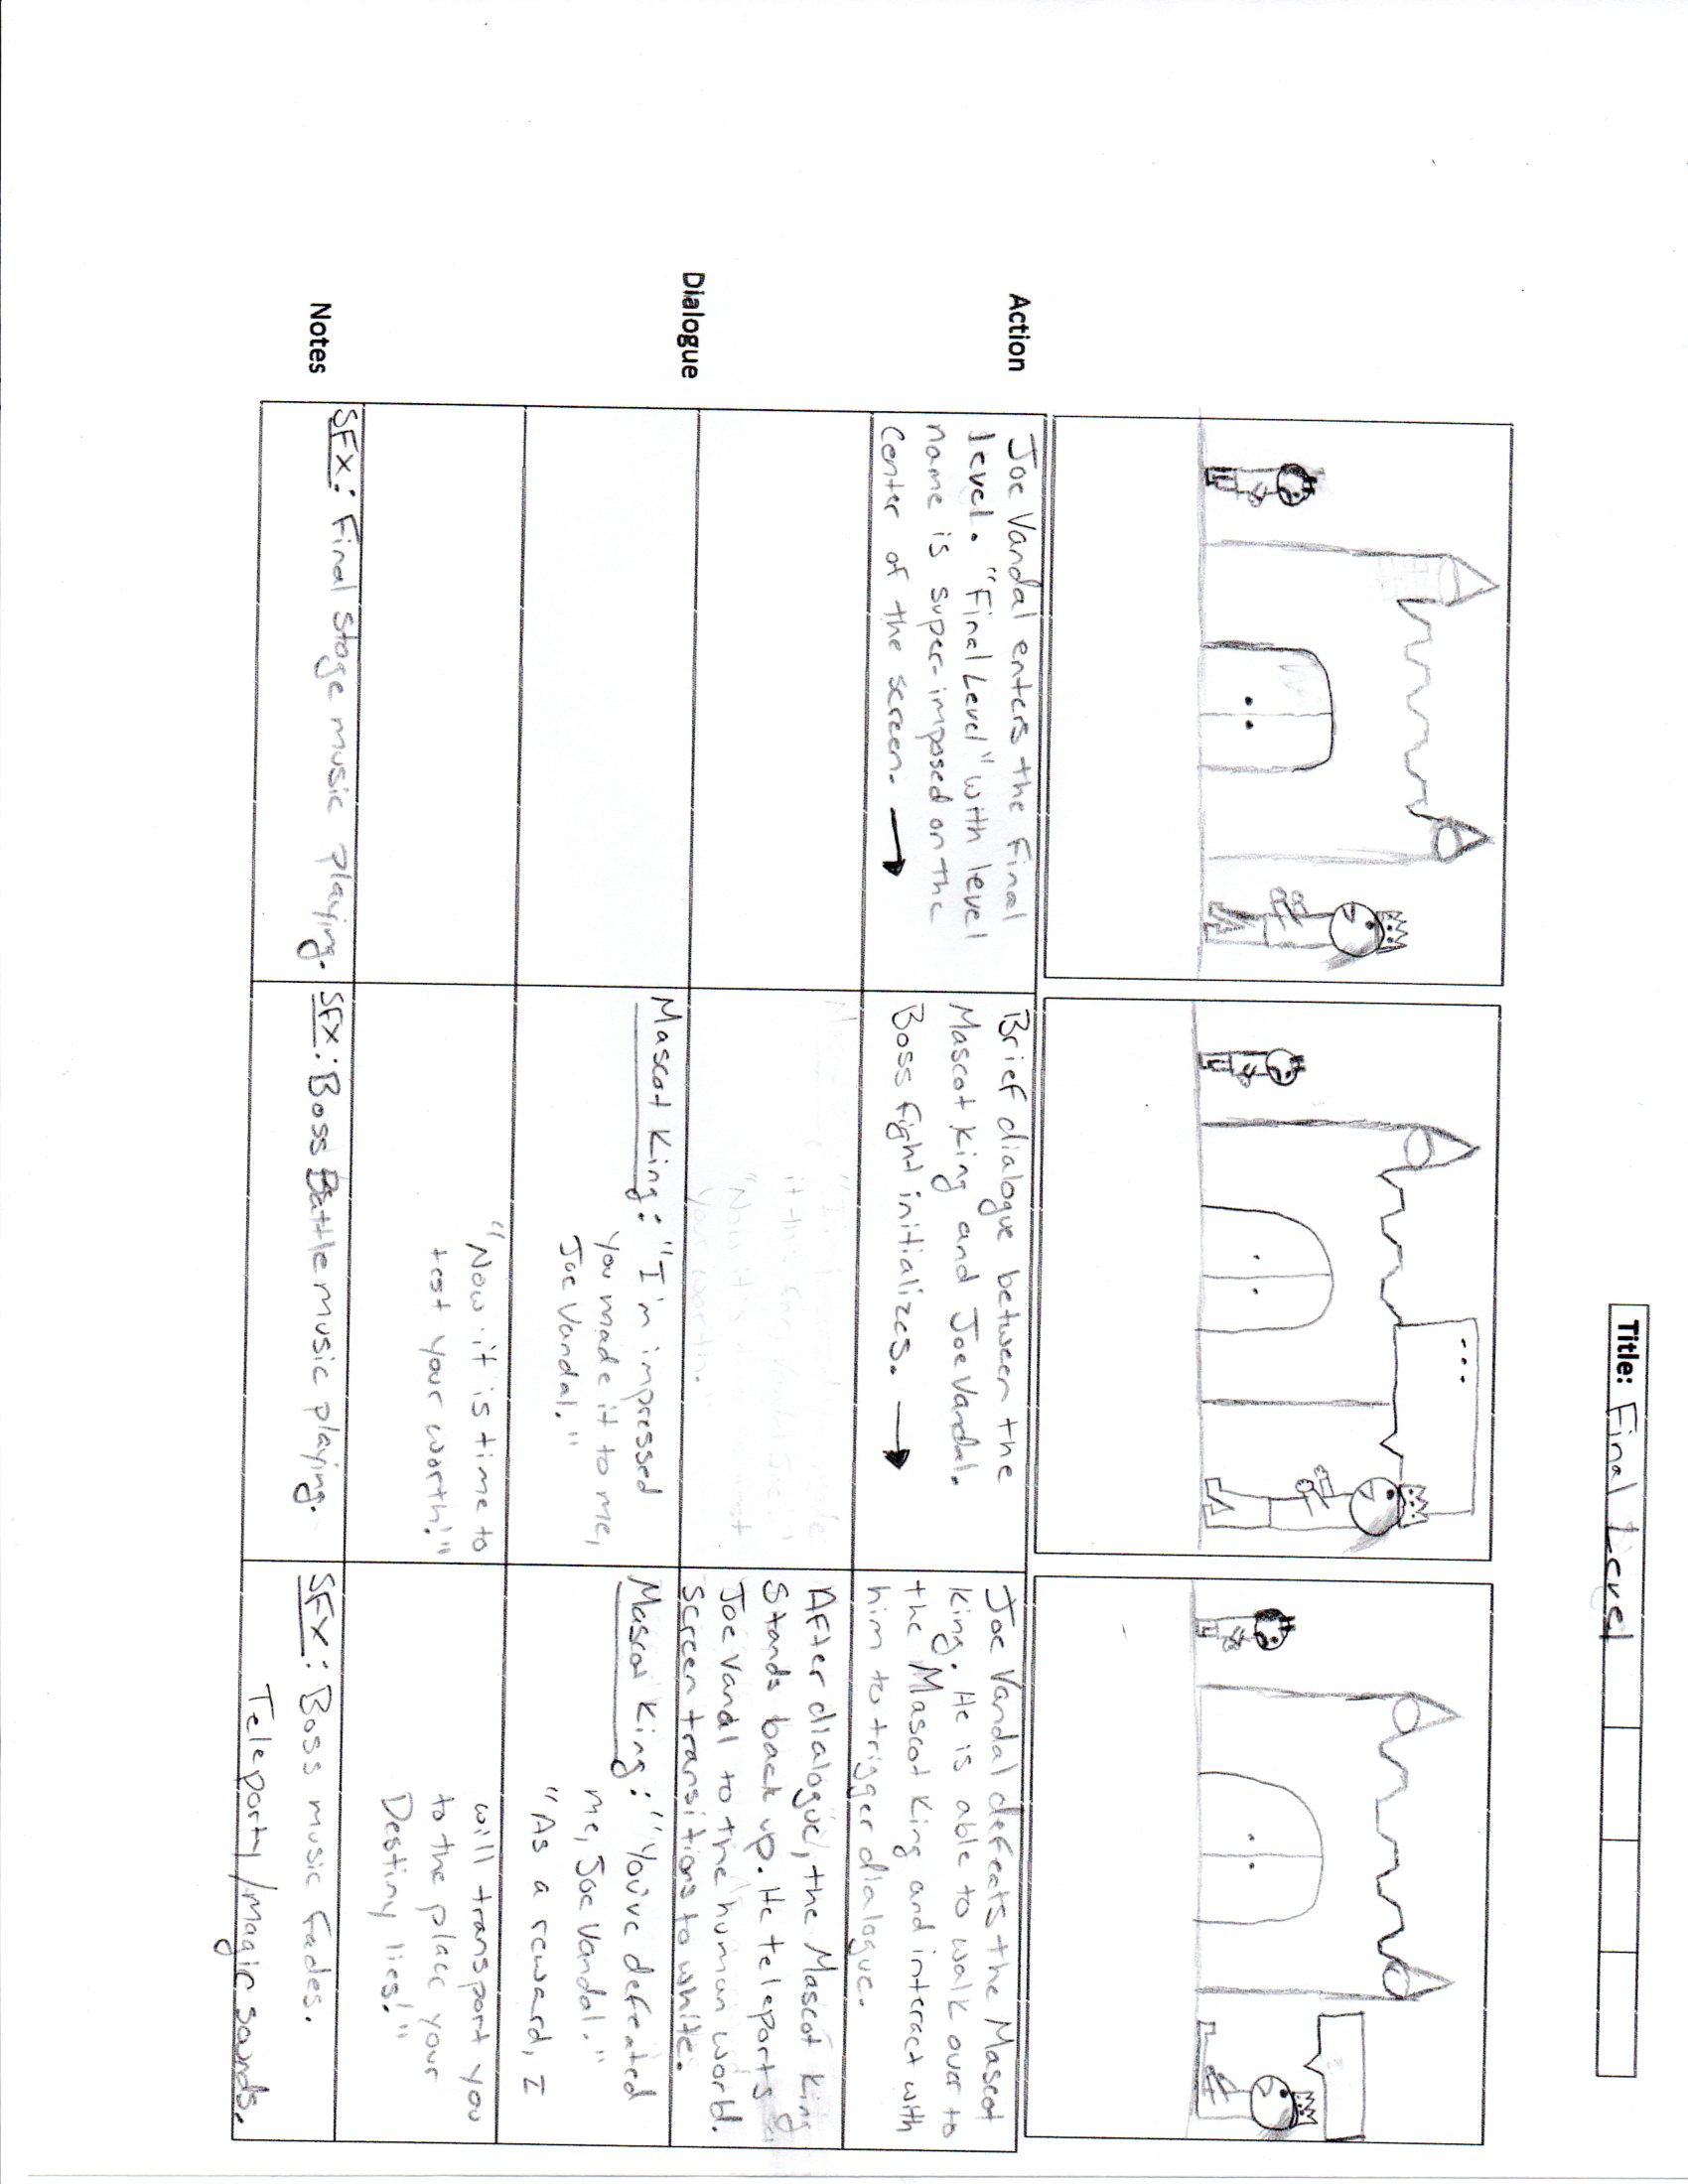 Title: Final Level
...
Action
Joe Vandal enters the Final
level. "Final Level" with level
name is super-imposed on the
Center of the screen.
Brief dialogue between the
Mascot King and Joe Vandal.
Boss fight initializes.
Joe Vandal defeats the Mascot
King. He is able to walk over to
the Mascot King and interact with
him to trigger dialogue.
After dialogue, the Mascot King
Stands back up. He teleports
Joe Vandl to the human world.
Screen transitions to white.
Dialogue
it this far, Vandal Joe!"
"Now it's
your worth."
Mascot King: "I'm impressed
you made it to me,
Joe Vandal."
"Now it is time to
test your worth!"
Mascot King: "You've defeated
me, Joe Vandal."
"As a reward, I
will transport you
to the place your
Destiny lies!"
Notes
SFX: Final stage music playing.
SFX: Boss Battle music playing.
SFX: Boss music fades.
Teleporty/magic sounds.